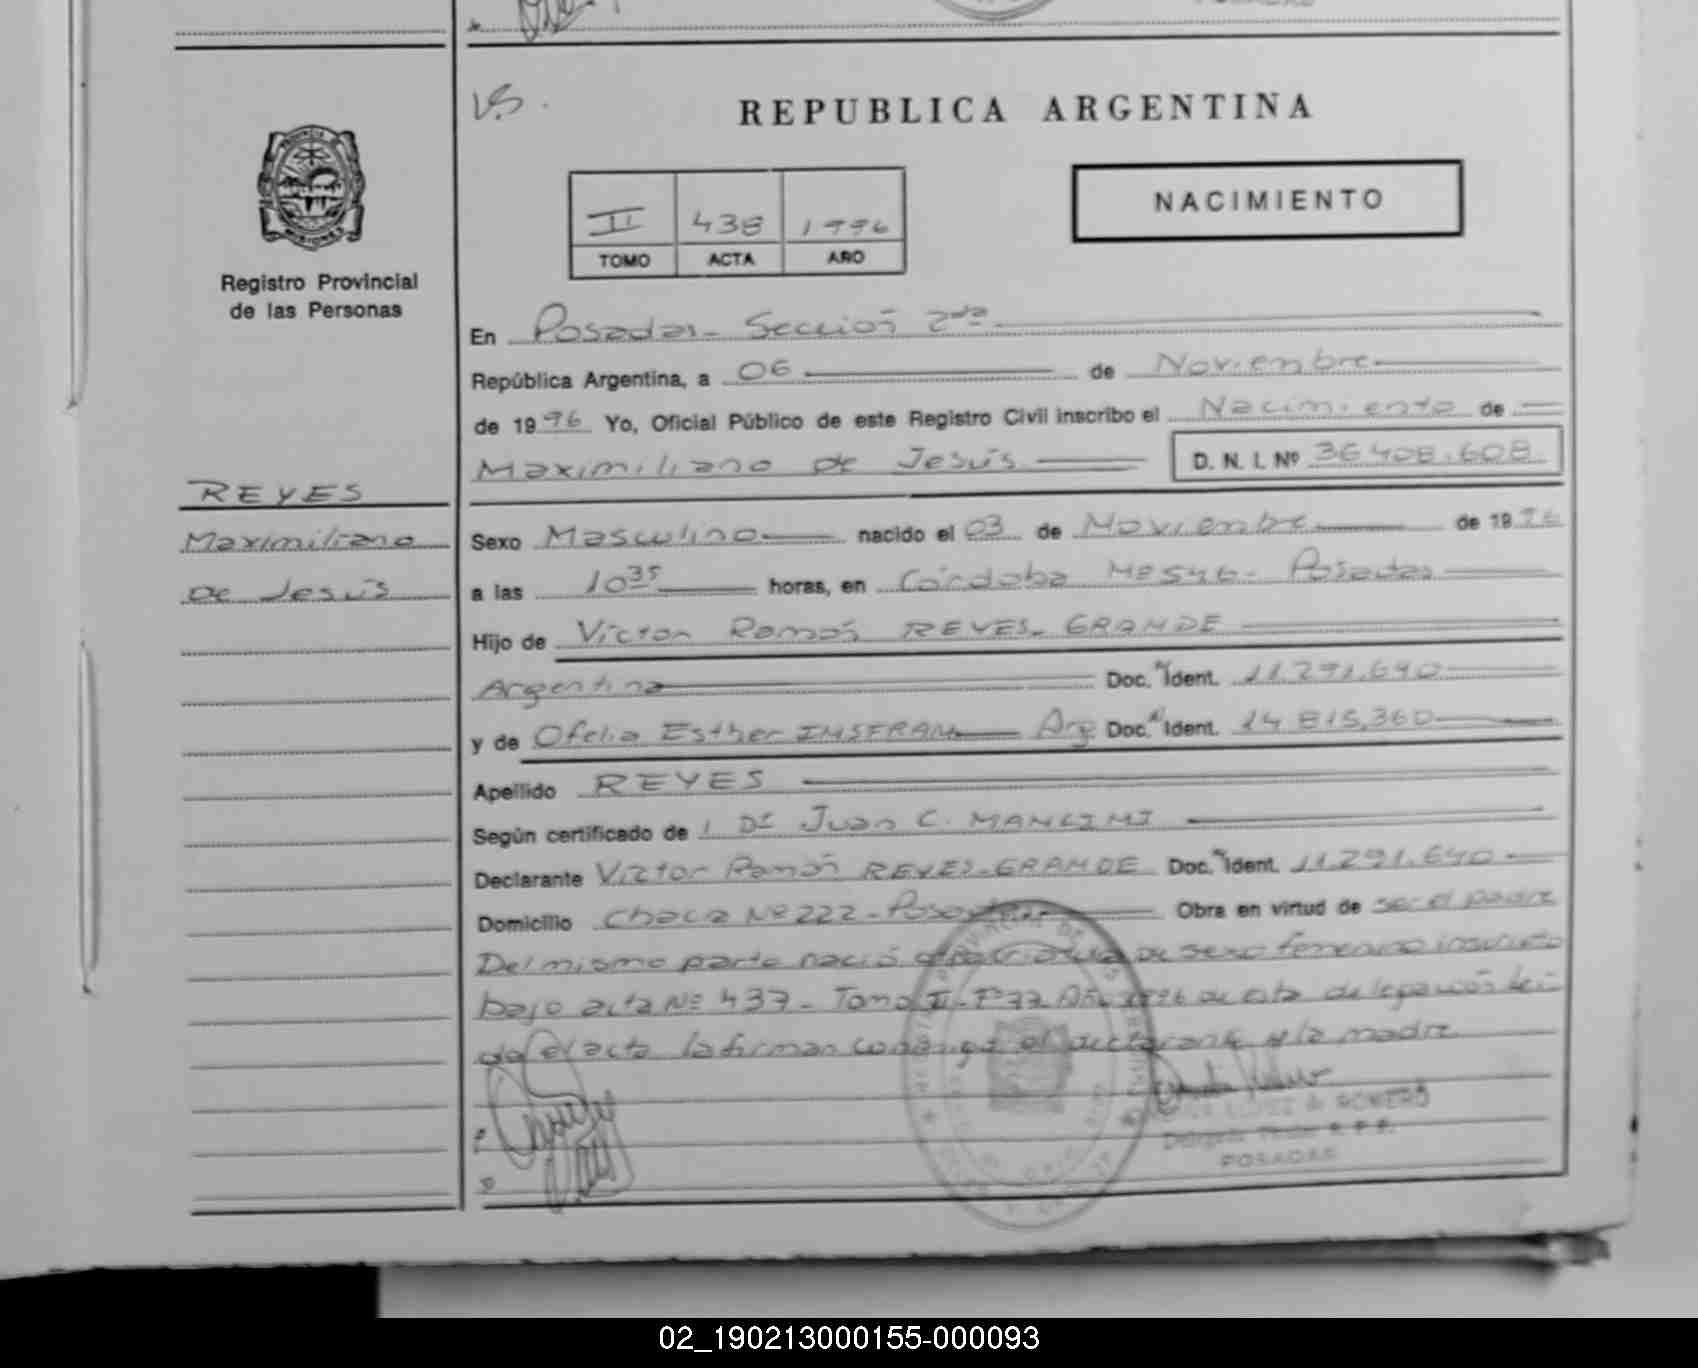 POSADAS
V.S.
REPUBLICA ARGENTINA
PROVINCIA
MISIONES
NACIMIENTO
II 438 1996
TOMO ACTA AÑO
Registro Provincial
de las Personas
En Posadas - Sección 2da
República Argentina, a 06 de Noviembre
de 1996 Yo, Oficial Público de este Registro Civil inscribo el Nacimiento de
Maximiliano de Jesús D. N. I. Nº 36.408.608
REYES
Maximiliano
de Jesús
Sexo Masculino nacido el 03 de Noviembre de 1996
a las 10 35 horas, en Córdoba Nº 546 - Posadas
Hijo de Víctor Ramón REYES - GRANDE
Argentina Doc. Ident. 11.291.640
y de Ofelia Esther INSFRAN Arg Doc. Ident. 14.815.360
Apellido REYES
Según certificado de Dr Juan C. MANCINI
Declarante Víctor Ramón REYES-GRANDE Doc. Ident. 11.291.640
Domicilio Chaca Nº 222 - Posadas Obra en virtud de ser el padre
Del mismo parto nació de sexo femenino inscripto
bajo acta Nº 437 - Tomo II - Fº 77 Año 1996 de esta delegación lei-
da el acta la firman conmigo el declarante y la madre
ROMERO
POSADAS
02_190213000155-000093